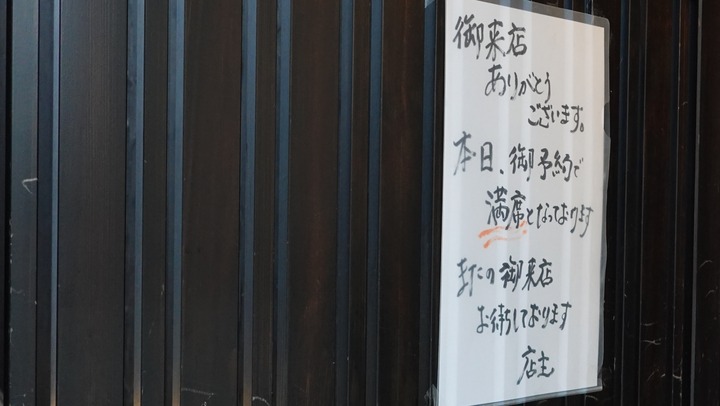 御来店
ありがとう
ございます。
本日、御予約で
満席となっております
またの御来店
お待ちしております
店主